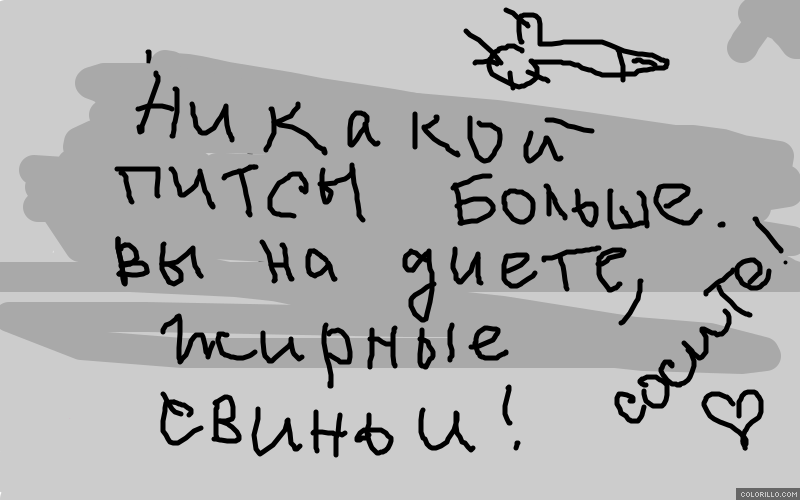 Никакой
питсы больше.
вы на диете,
жирные
свиньи!
сосите!
COLORILLO.COM